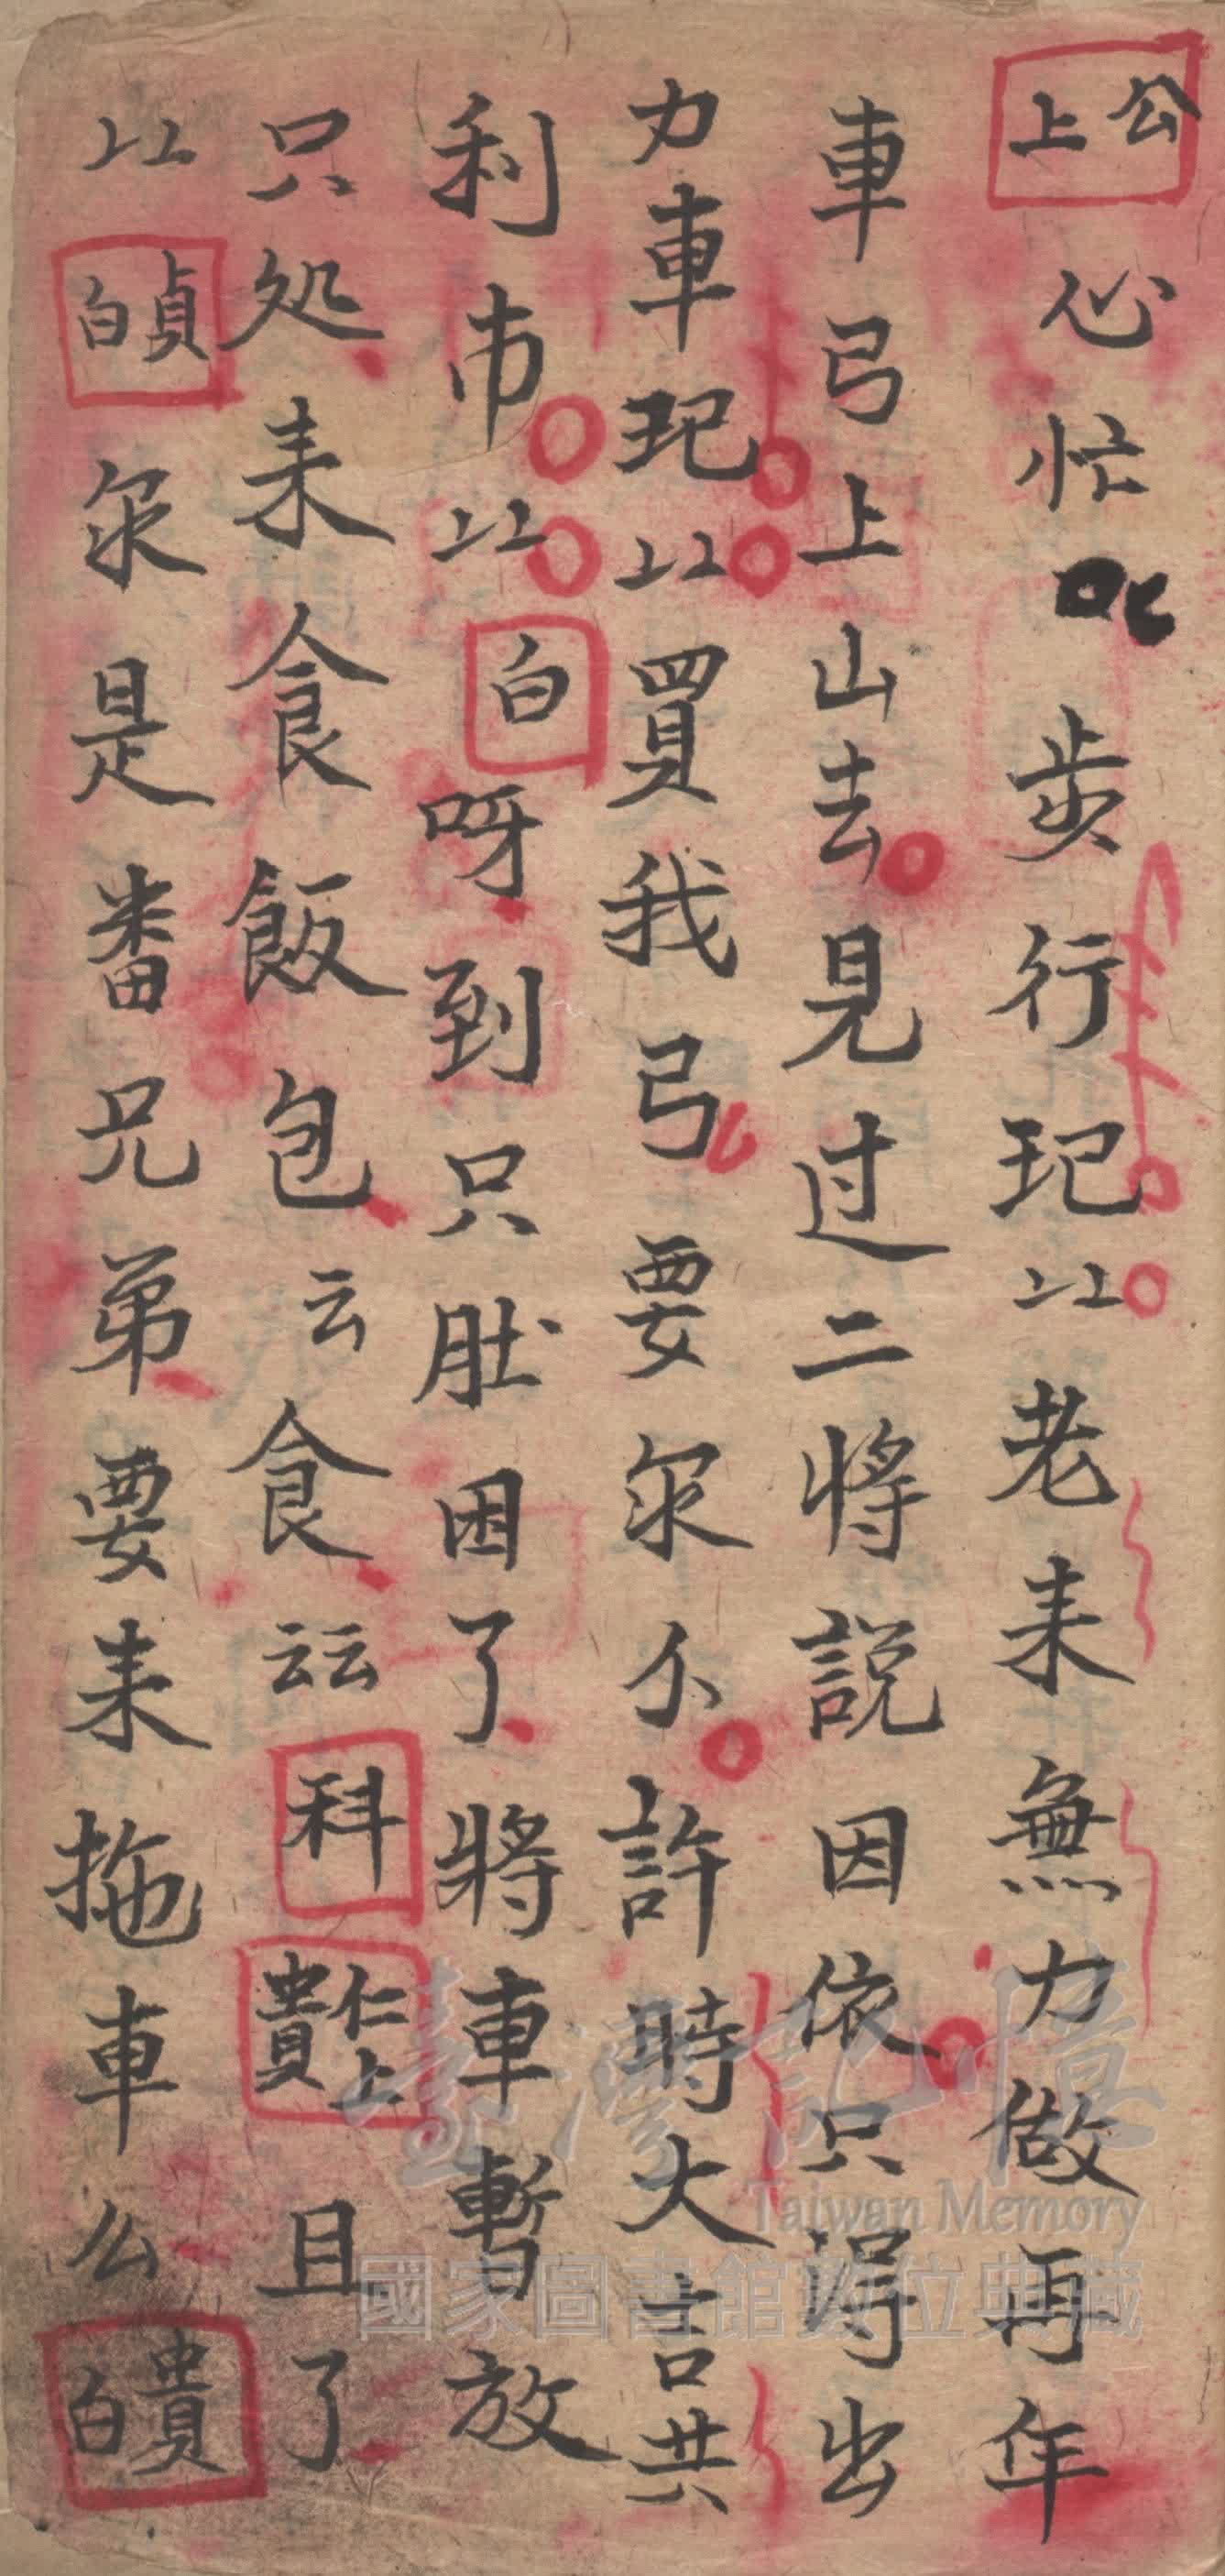 公上心忙步行玘〻老耒無力做再年
車弓上山去見过二將説因依只得出
力車玘〻買我弓要尔仆許時大言共
利市〻白呀到只肚困了將車暫放
只処耒食飯包云食云云科仁貴上且了
〻貞白尔是番兄弟要耒拖車么貴白
臺灣記憶
Taiwan Memory
國家圖書館數位典藏